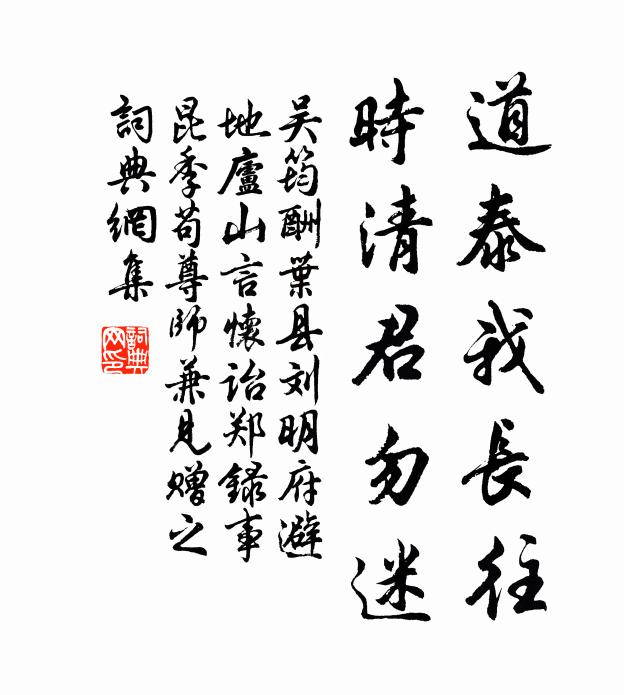 道泰我長往
時清君勿迷
吴筠酬葉县刘明府避
地廬山言懷诒郑録事
昆季苟尊师兼見赠之
詞典網集
詞典
网印